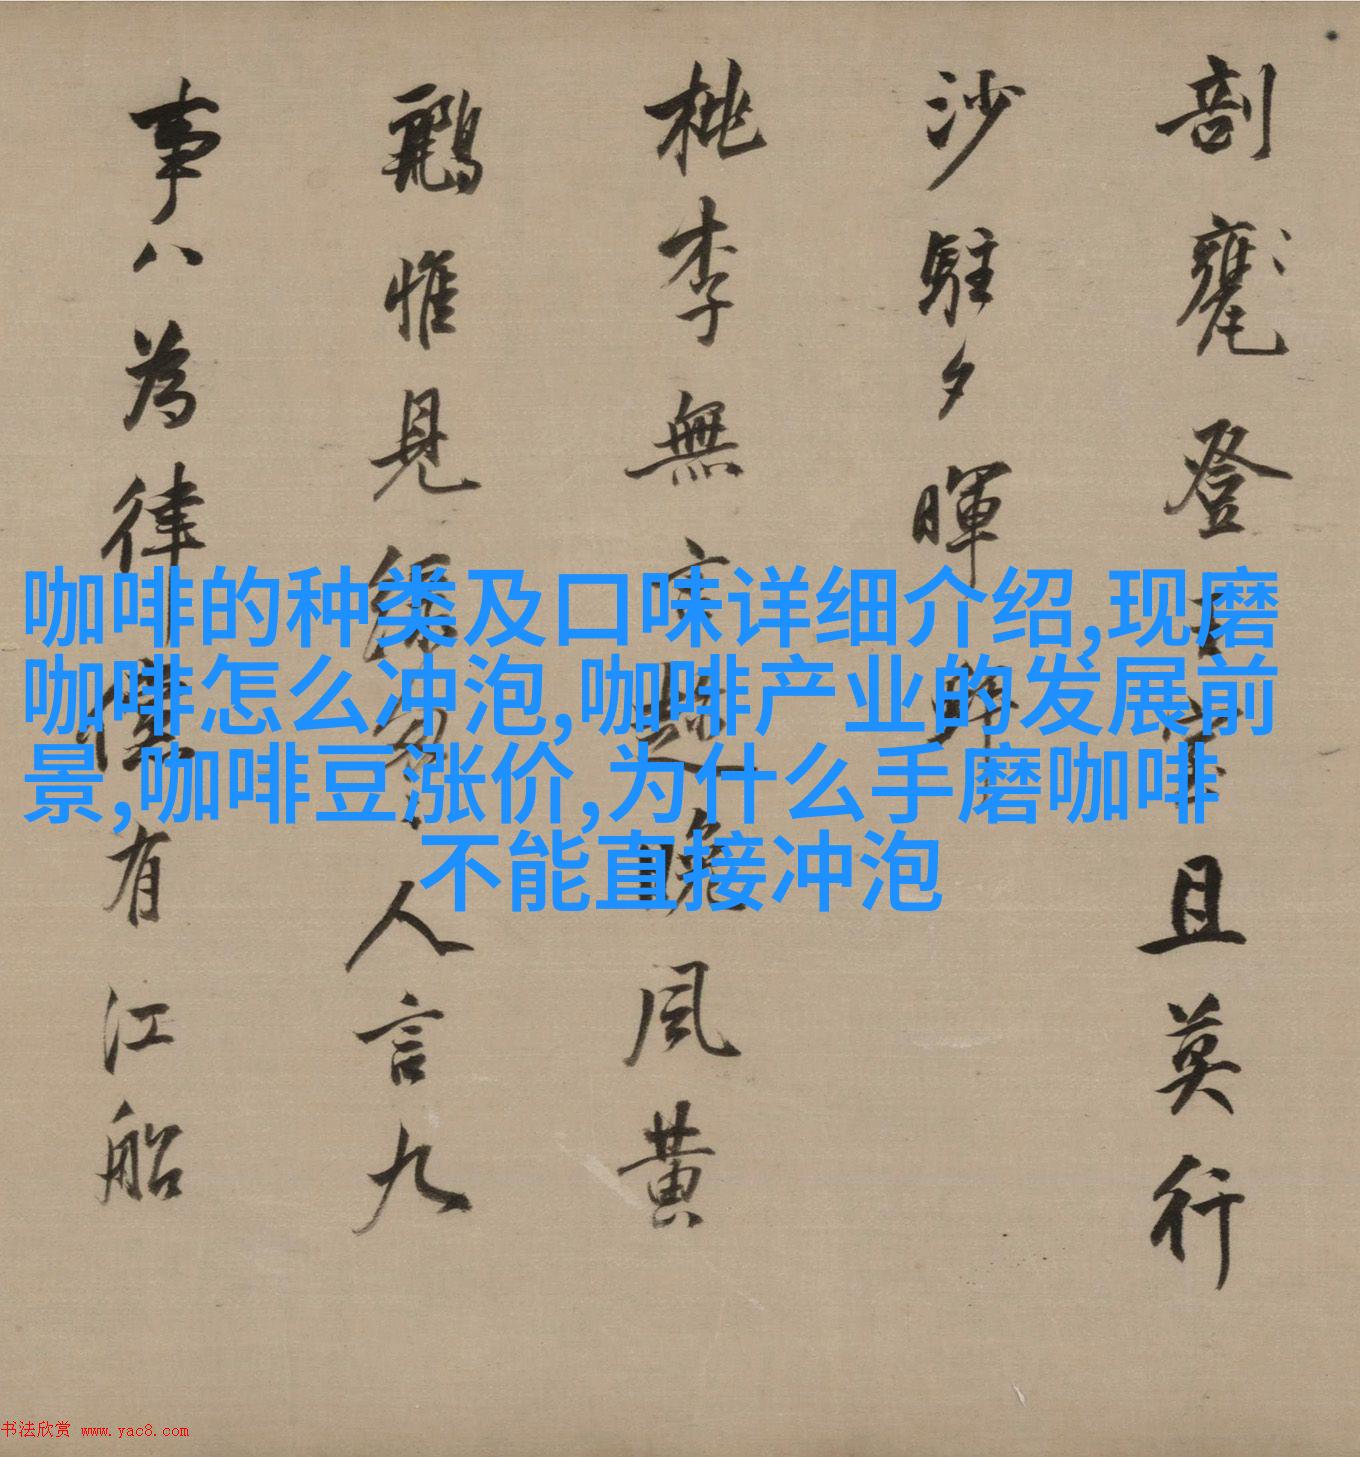 剖甕登且莫行
沙駐夕暉
桃李無言晚風黃
鸝惟見綠匆〻人言九
事八為律儻有江船
咖啡的种类及口味详细介绍,现磨
咖啡怎么冲泡,咖啡产业的发展前
景,咖啡豆涨价,为什么手磨咖啡
不能直接冲泡
书法欣赏 www.yac8.com